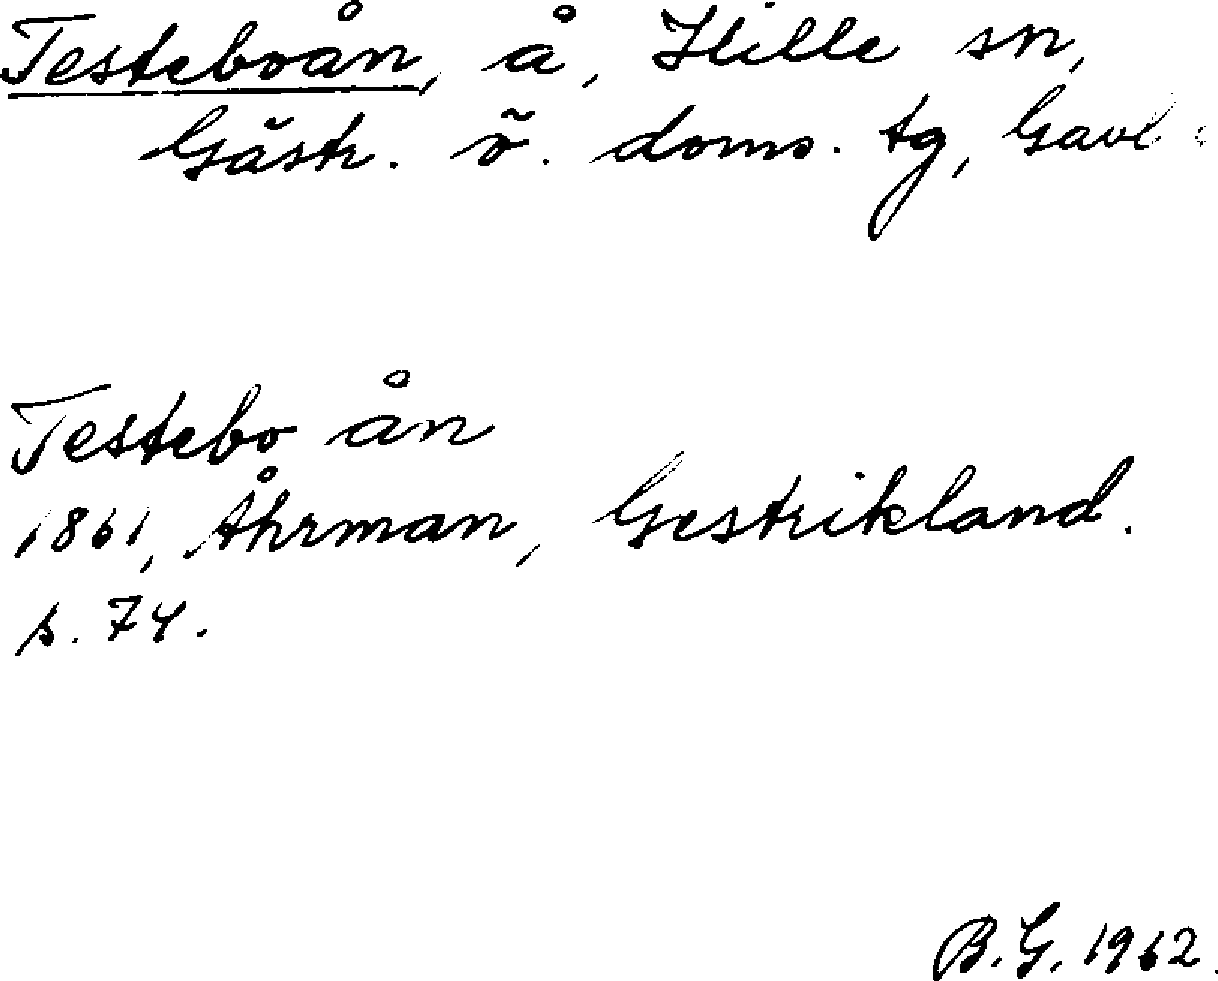 Testeboån, å, Hille sn,
Gästr. ö. doms. tg, Gävl.
Testebo ån
1861, Åhrman, Gestrikland.
s. 74.
B.G. 1962.